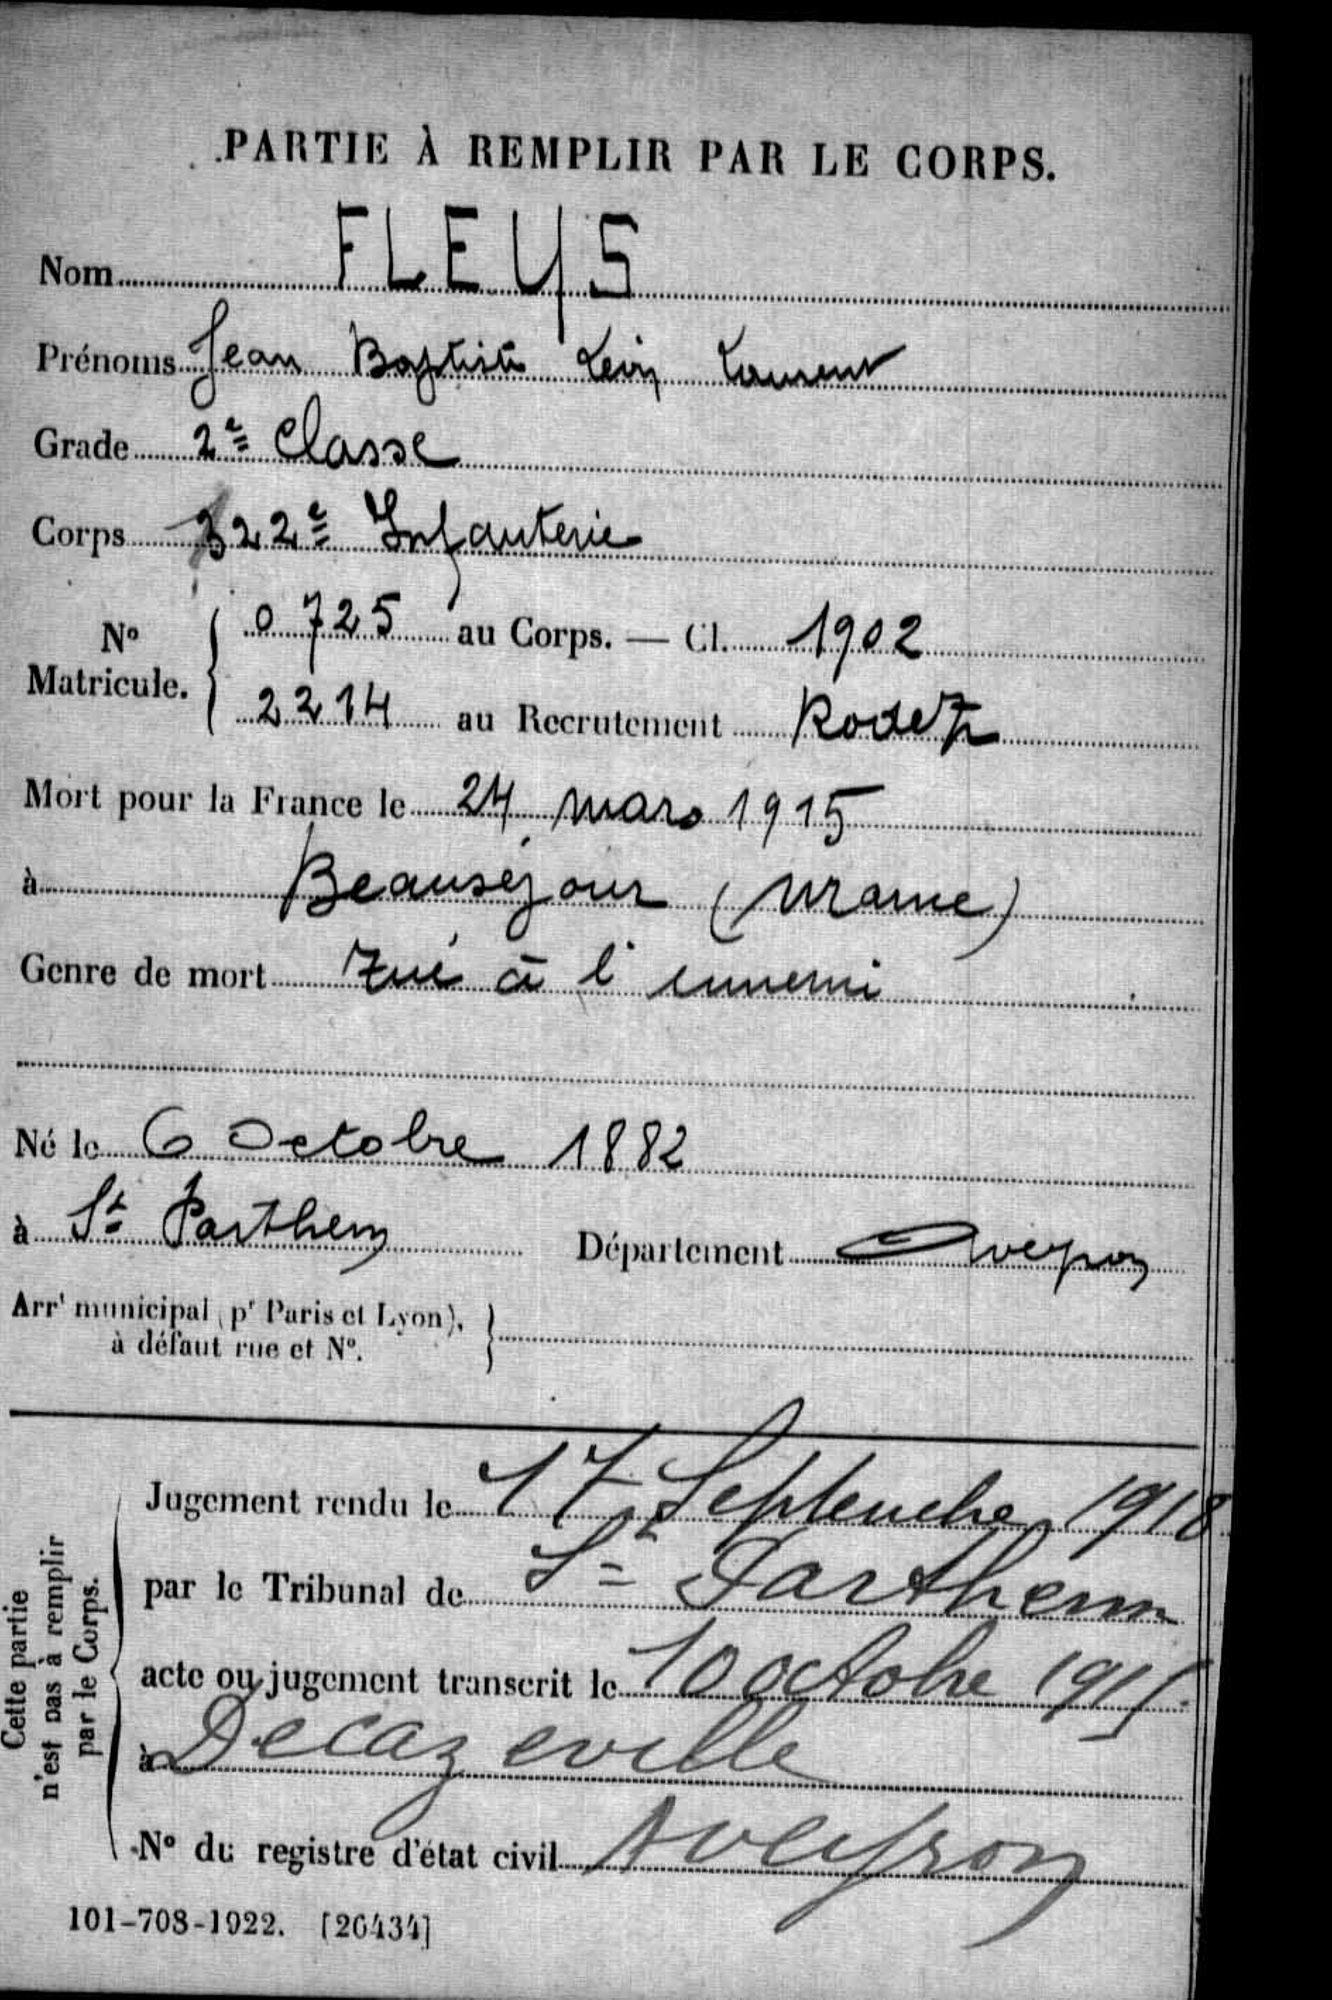 PARTIE À REMPLIR PAR LE CORPS.
Nom FLEYS
Prénoms Jean Baptiste Léon Laurent
Grade 2e Classe
Corps 322e Infanterie
No Matricule. { 0725 au Corps. — Cl. 1902
2214 au Recrutement Rodez
Mort pour la France le 24 mars 1915
à Beauséjour (Marne)
Genre de mort tué à l'ennemi
Né le 6 Octobre 1882
à St Parthem Département Aveyron
Arrt municipal (pr Paris et Lyon), à défaut rue et No. }
Cette partie n'est pas à remplir par le Corps.
Jugement rendu le 17 Septembre 1918
par le Tribunal de St Parthem
acte ou jugement transcrit le 10 octobre 1915
à Decazeville
No du registre d'état civil Aveyron
101-708-1922. [26434]